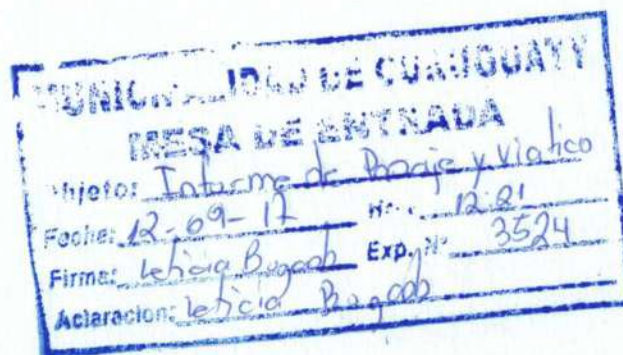 MUNICIPALIDAD DE CURUGUATY
MESA DE ENTRADA
Objeto: Informe de Pasaje y Viatico
Fecha: 12-09-17 Hs.: 12:21
Firma: Leticia Exp. N° 3524
Aclaracion: Leticia